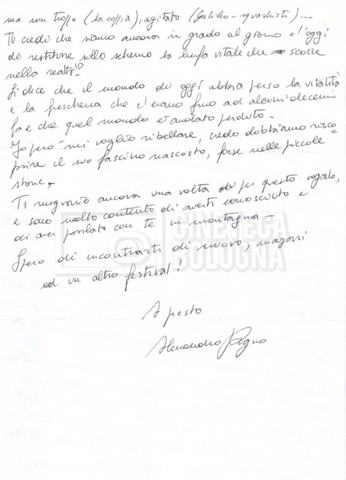 ma non troppo (la coffia), agitato (Galileo - squardisti)...
Tu credi che siamo ancora in grado al giorno d'oggi
di restituire sullo schermo la linfa vitale che scorre
nella realtà?
Si dice che il mondo di oggi abbia perso la vitalità
e la freschezza che c'erano fino ad alcuni decenni
fa e che quel mondo è andato perduto.
Io però mi voglio ribellare, credo dobbiamo risco=
prire il suo fascino nascosto, forse nelle piccole
storie.
Ti ringrazio ancora una volta per questo regalo,
e sono molto contento di averti conosciuto e
di aver parlato con te in montagna -
Spero di incontrarti di nuovo, magari
ad un altro festival!
A presto
Alessandro
CINETECA
BOLOGNA